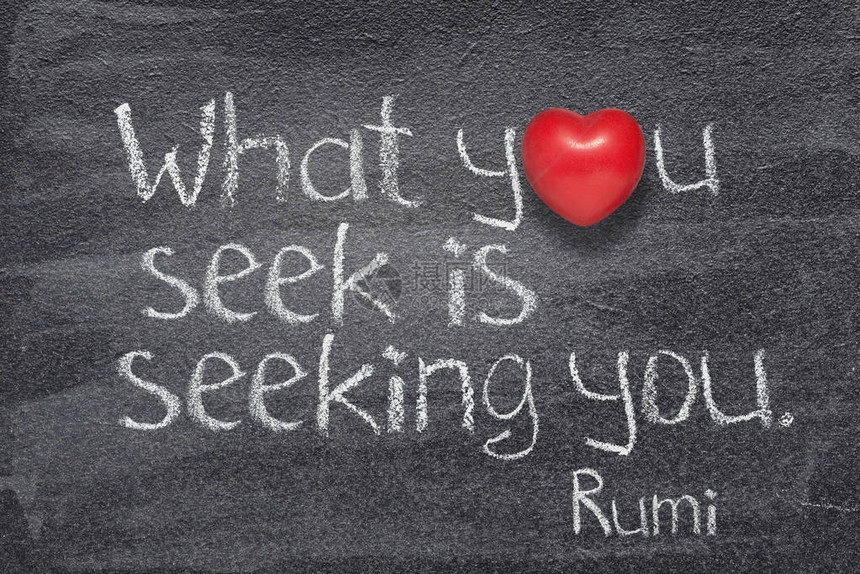 What you
seek is
seeking you.
Rumi
摄图网